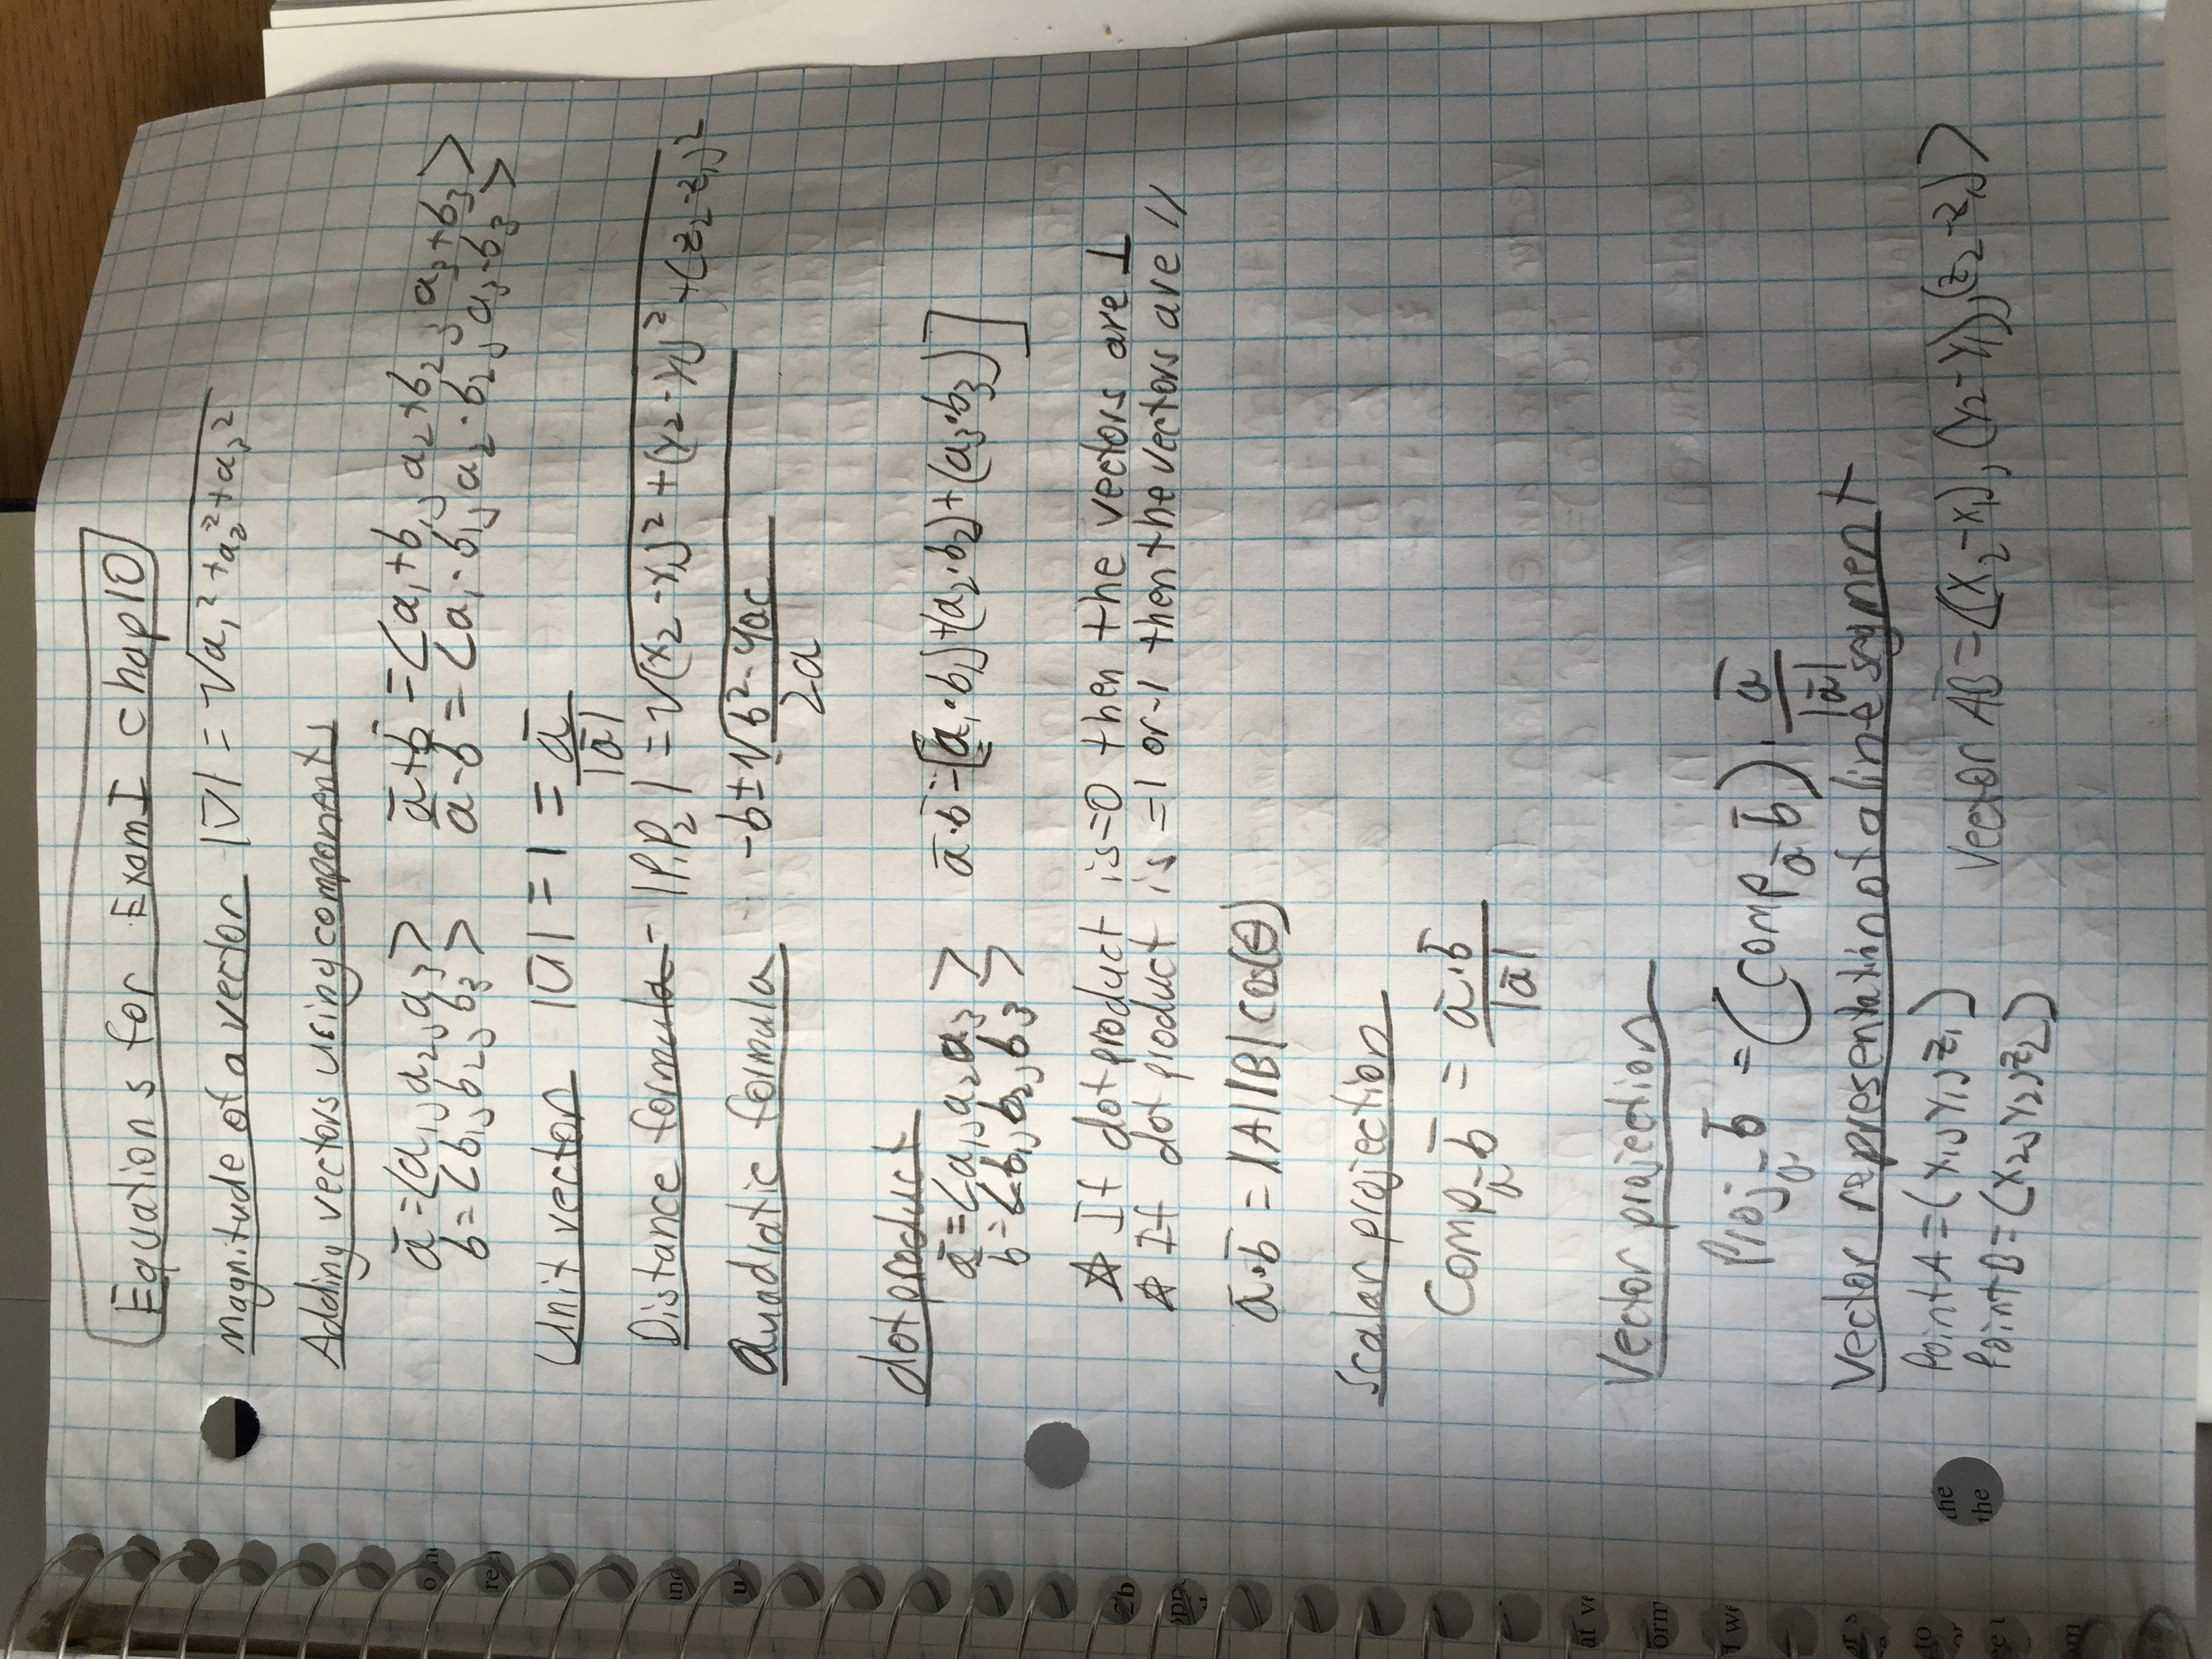 Equations for Exam I chap 10
Magnitude of a vector |v̄| = √a₁² + a₂² + a₃²
Adding vectors using components
ā = <a₁, a₂, a₃> ā + b̄ = <a₁ + b₁, a₂ + b₂, a₃ + b₃>
b = <b₁, b₂, b₃> a - b = <a₁ - b₁, a₂ - b₂, a₃ - b₃>
Unit vector |ū| = 1 = ā / |ā|
Distance formula - |P₁P₂| = √(x₂ - x₁)² + (y₂ - y₁)² + (z₂ - z₁)²
Quadratic formula -b ± √b² - 4ac / 2a
dot product
ā = <a₁, a₂, a₃> ā·b̄ = [(a₁·b₁) + (a₂·b₂) + (a₃·b₃)]
b = <b₁, b₂, b₃>
☆ If dot product is = 0 then the vectors are ⊥
☆ If dot product is = 1 or -1 then the vectors are //
ā·b̄ = |A||B| cos(θ)
Scalar projection
Comp_ā b̄ = ā·b̄ / |ā|
Vector projection
Proj_ā b̄ = (Comp_ā b̄) · ā / |ā|
Vector representation of a line segment
Point A = (x₁, y₁, z₁)
Point B = (x₂, y₂, z₂) Vector AB = <(x₂ - x₁), (y₂ - y₁), (z₂ - z₁)>
the
the